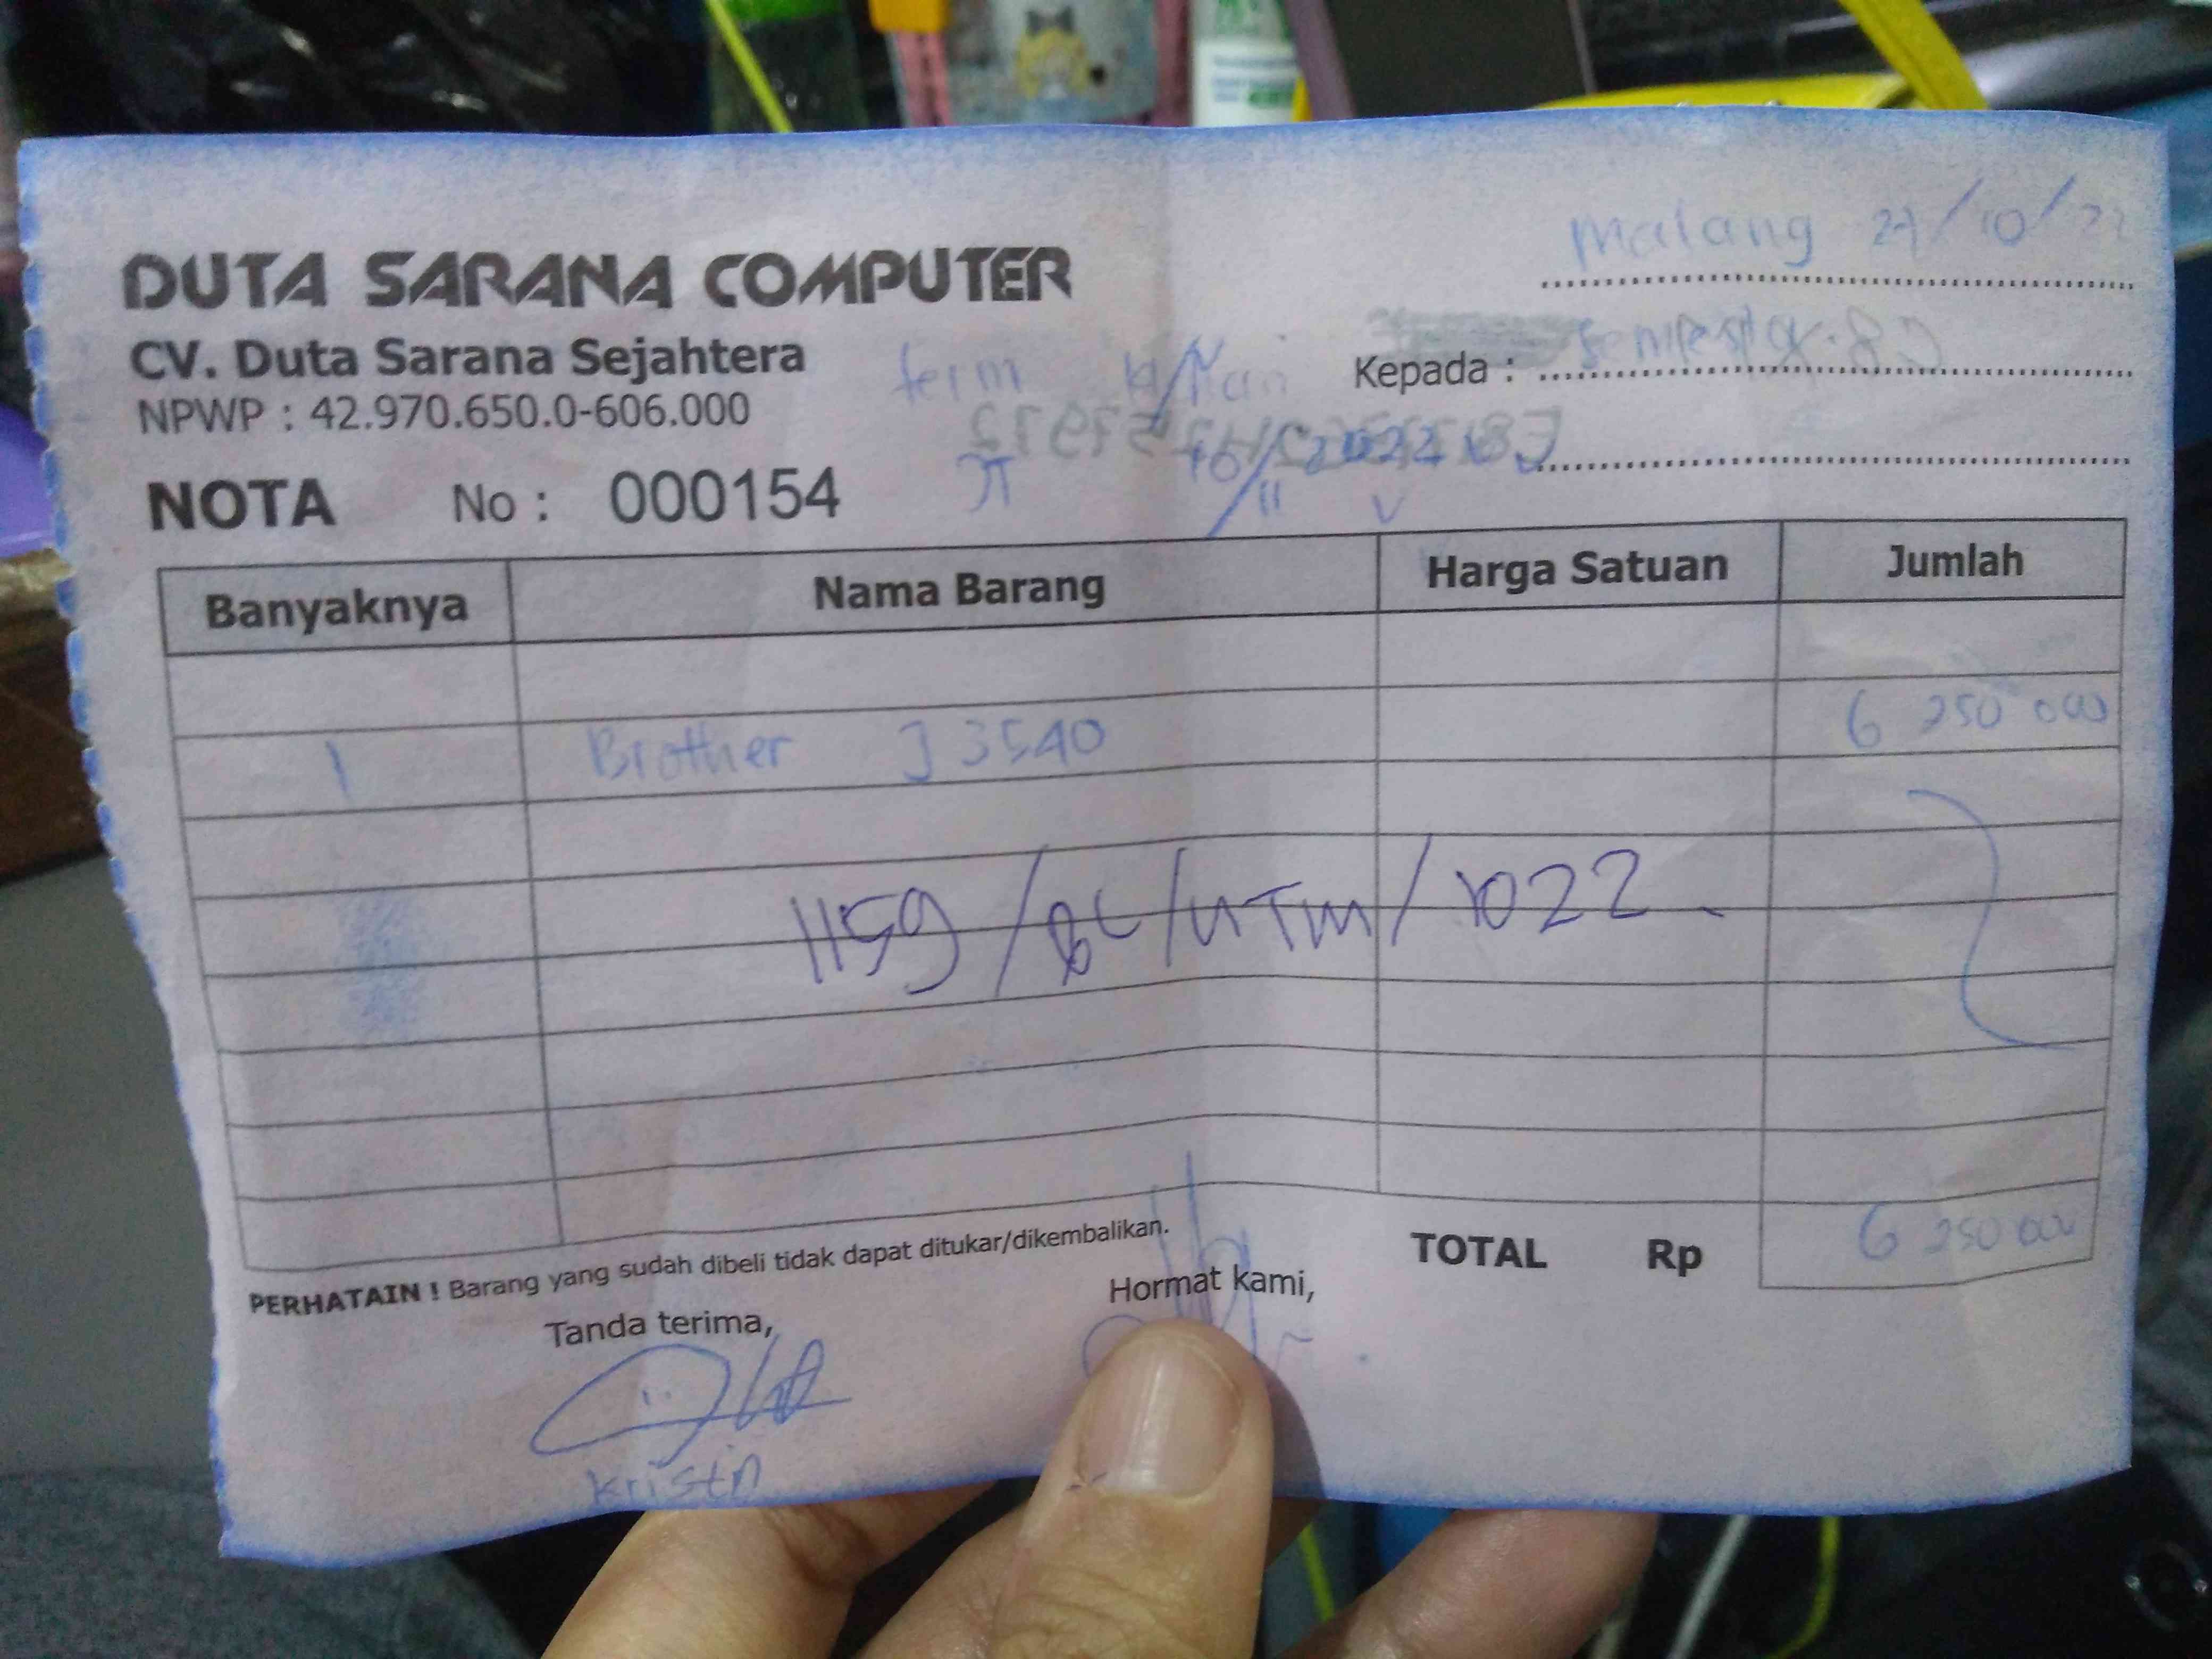 Malang 27/10/22
DUTA SARANA COMPUTER
CV. Duta Sarana Sejahtera
Kepada :
NPWP : 42.970.650.0-606.000
term
10/2022
11
NOTA No : 000154
Banyaknya Nama Barang Harga Satuan Jumlah
1 Brother J 3540 6 250 000
1159/BC/UTM/1022
PERHATAIN ! Barang yang sudah dibeli tidak dapat ditukar/dikembalikan.
TOTAL Rp 6 250 000
Tanda terima, Hormat kami,
Kristn